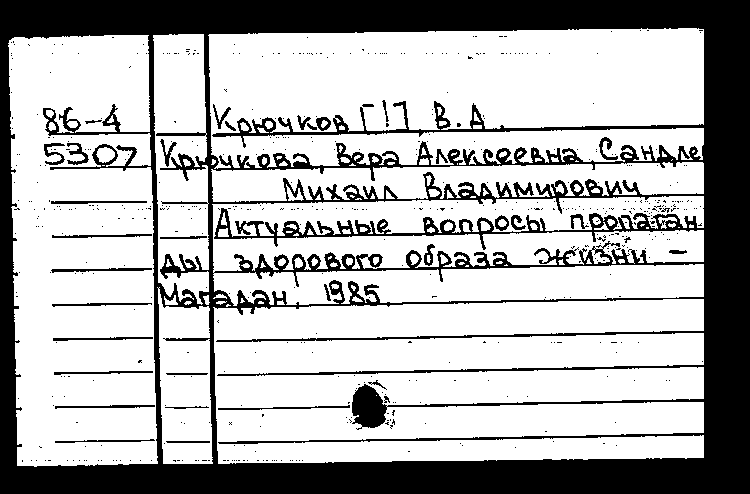 86-4 Крючков [!] В.А.
5307 Крючкова, Вера Алексеевна, Сандле
Михаил Владимирович
Актуальные вопросы пропаган
ды здорового образа жизни –
Магадан, 1985.